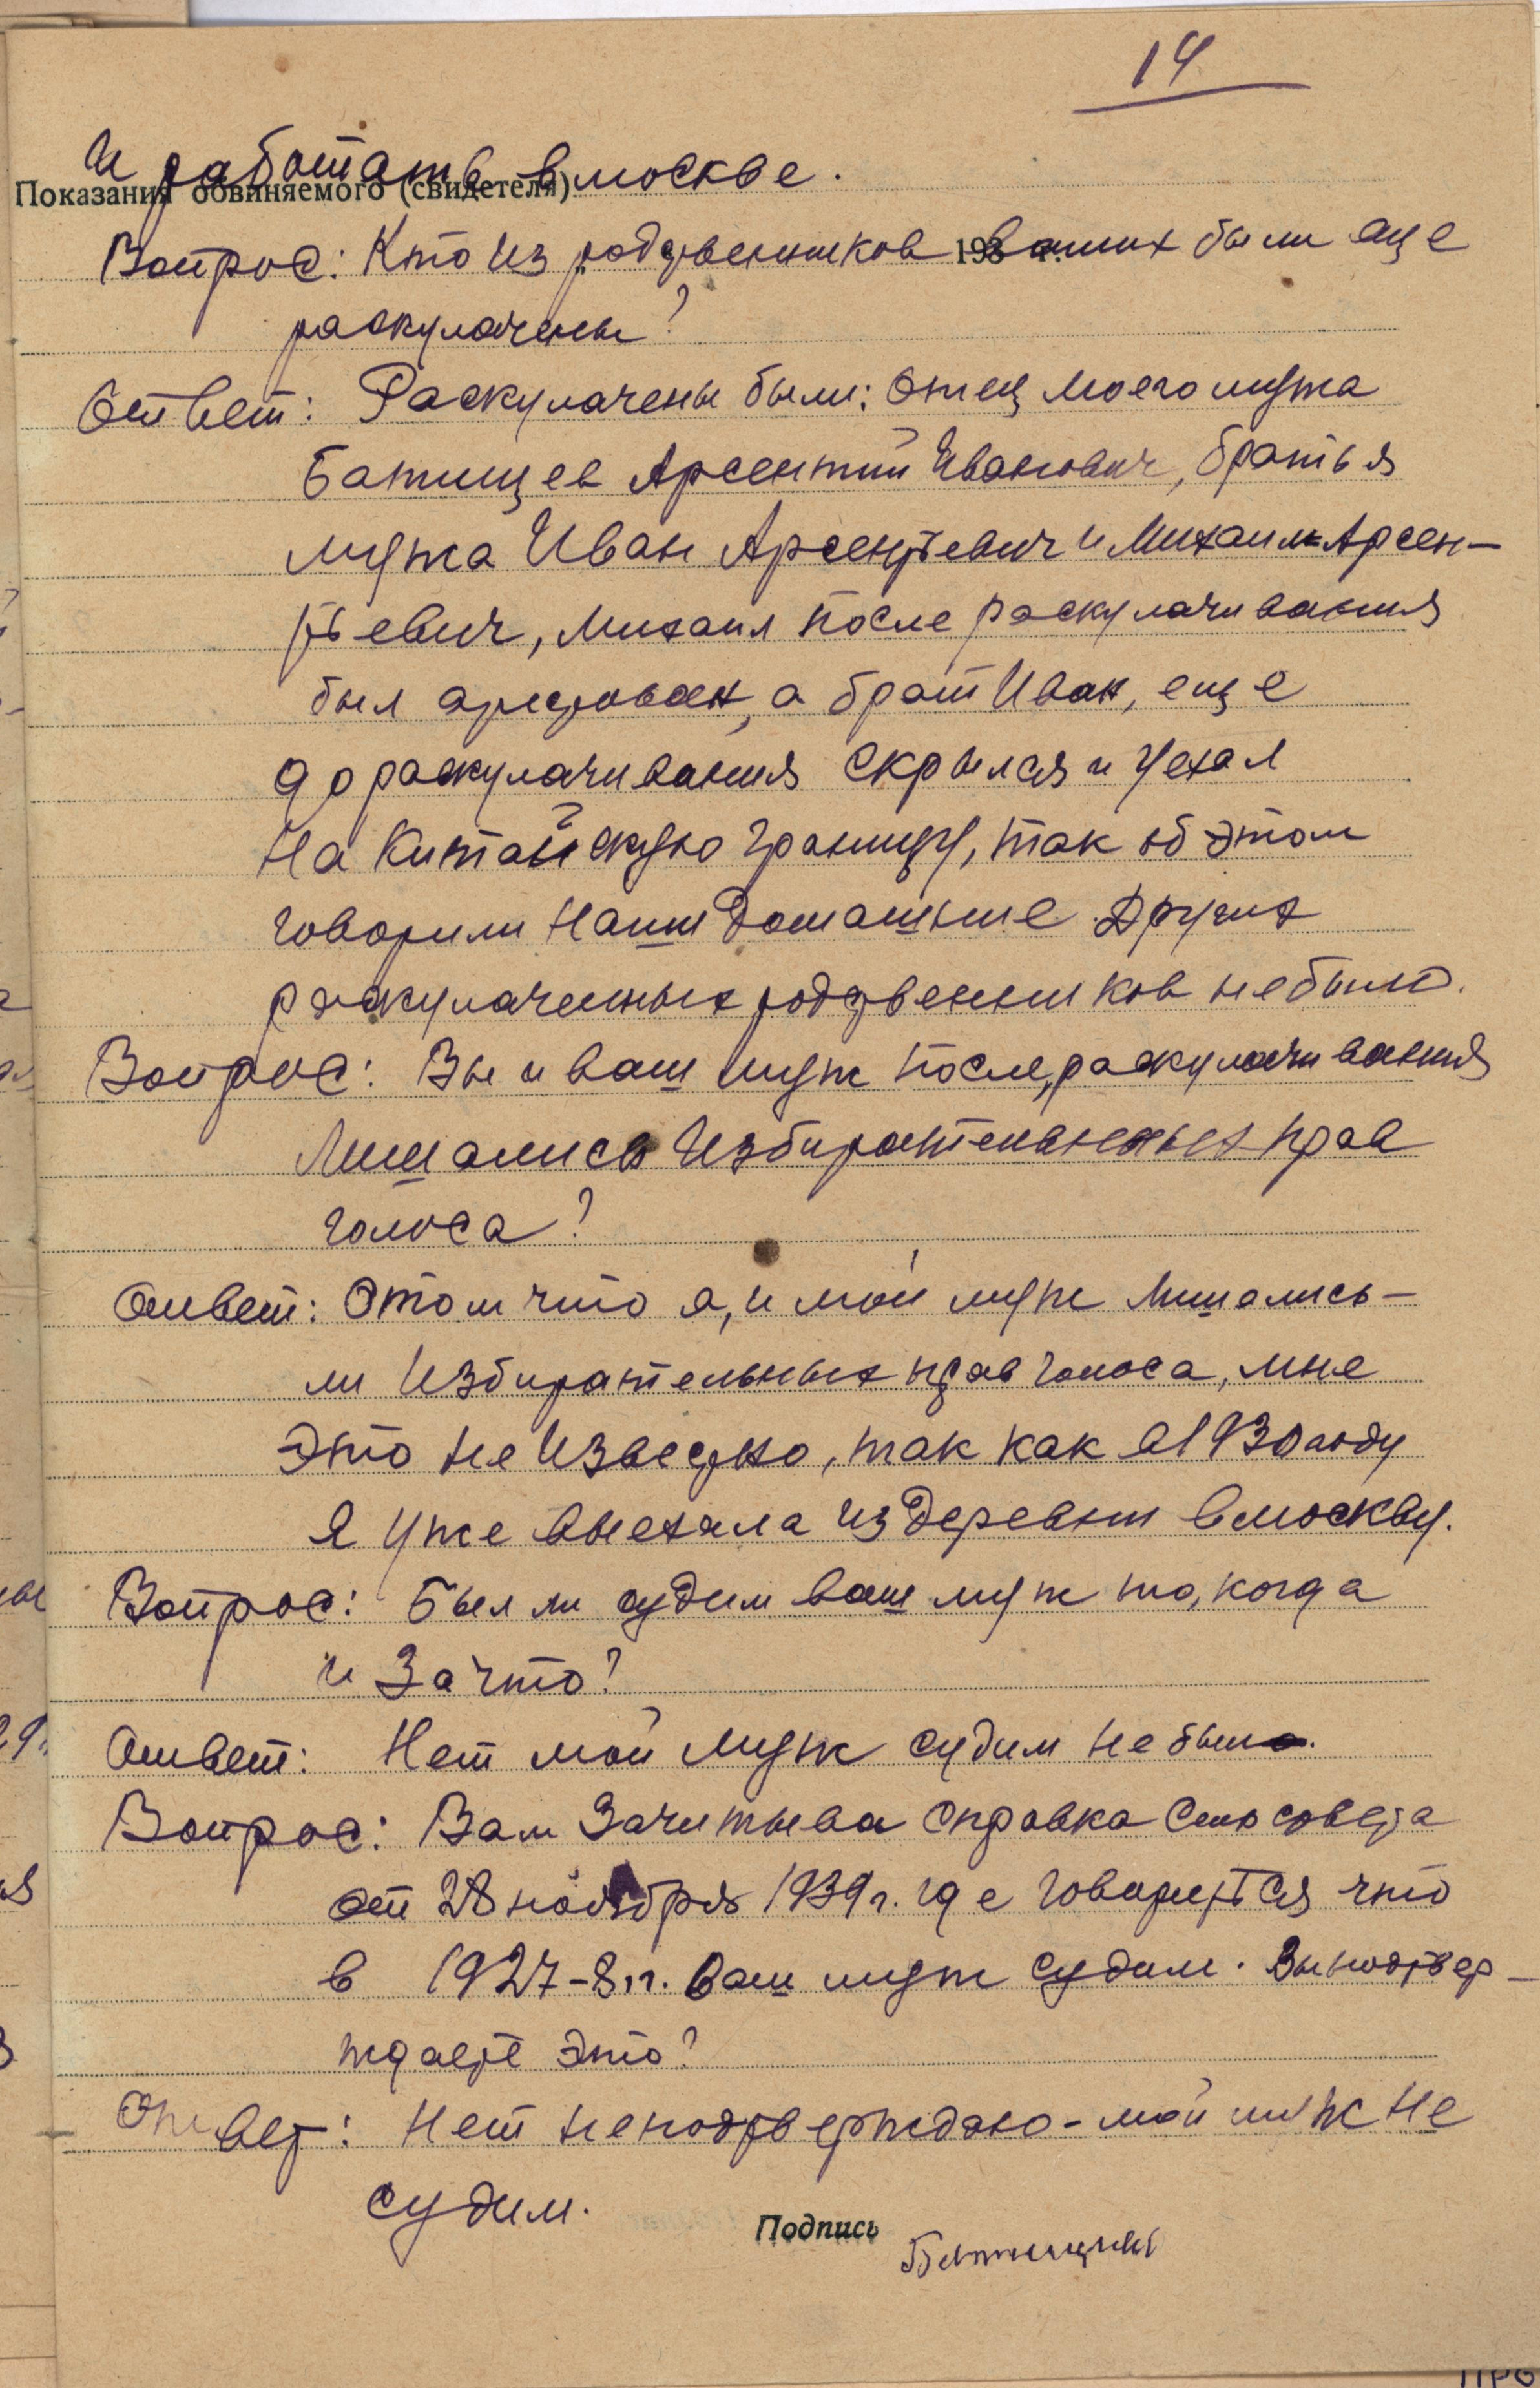 14
и работать в москве.
Показания обвиняемого (свидетеля)
Вопрос: Кто из родственников ваших были еще
193 г.
раскулачены?
Ответ: Раскулачены были: отец моего мужа
Батищев Арсентий Иванович, братья
мужа Иван Арсентьевич и Михаил Арсен-
тьевич, Михаил после раскулачивания
был арестован, а брат Иван, еще
до раскулачивания скрылся и уехал
на Китайскую границу, так об этом
говорили наши домашние. Других
раскулаченных родственников не было.
Вопрос: Вы и ваш муж после раскулачивания
Лишались избирательных прав
голоса?
Ответ: О том что я, и мой муж лишались-
ли избирательных прав голоса, мне
это не известно, так как в 1930 году
я уже выехала из деревни в москву.
Вопрос: Был ли судим ваш муж то, когда
и за что?
Ответ: Нет мой муж судим не был.
Вопрос: Вам зачитыва справка Сельсовета
от 28 ноября 1939 г. где говорится что
в 1927-8 гг. ваш муж судим. Вы подтвер-
ждаете это?
Ответ: Нет не подтверждаю - мой муж не
судим.
Подпись